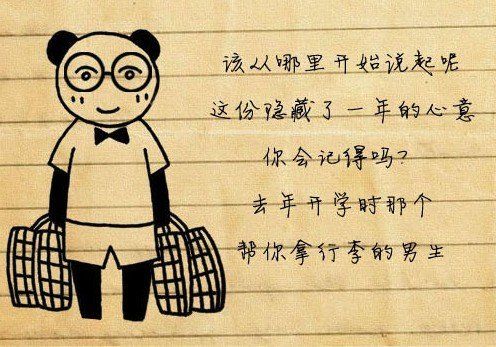 该从哪里开始说起呢
这份隐藏了一年的心意
你会记得吗?
去年开学时那个
帮你拿行李的男生